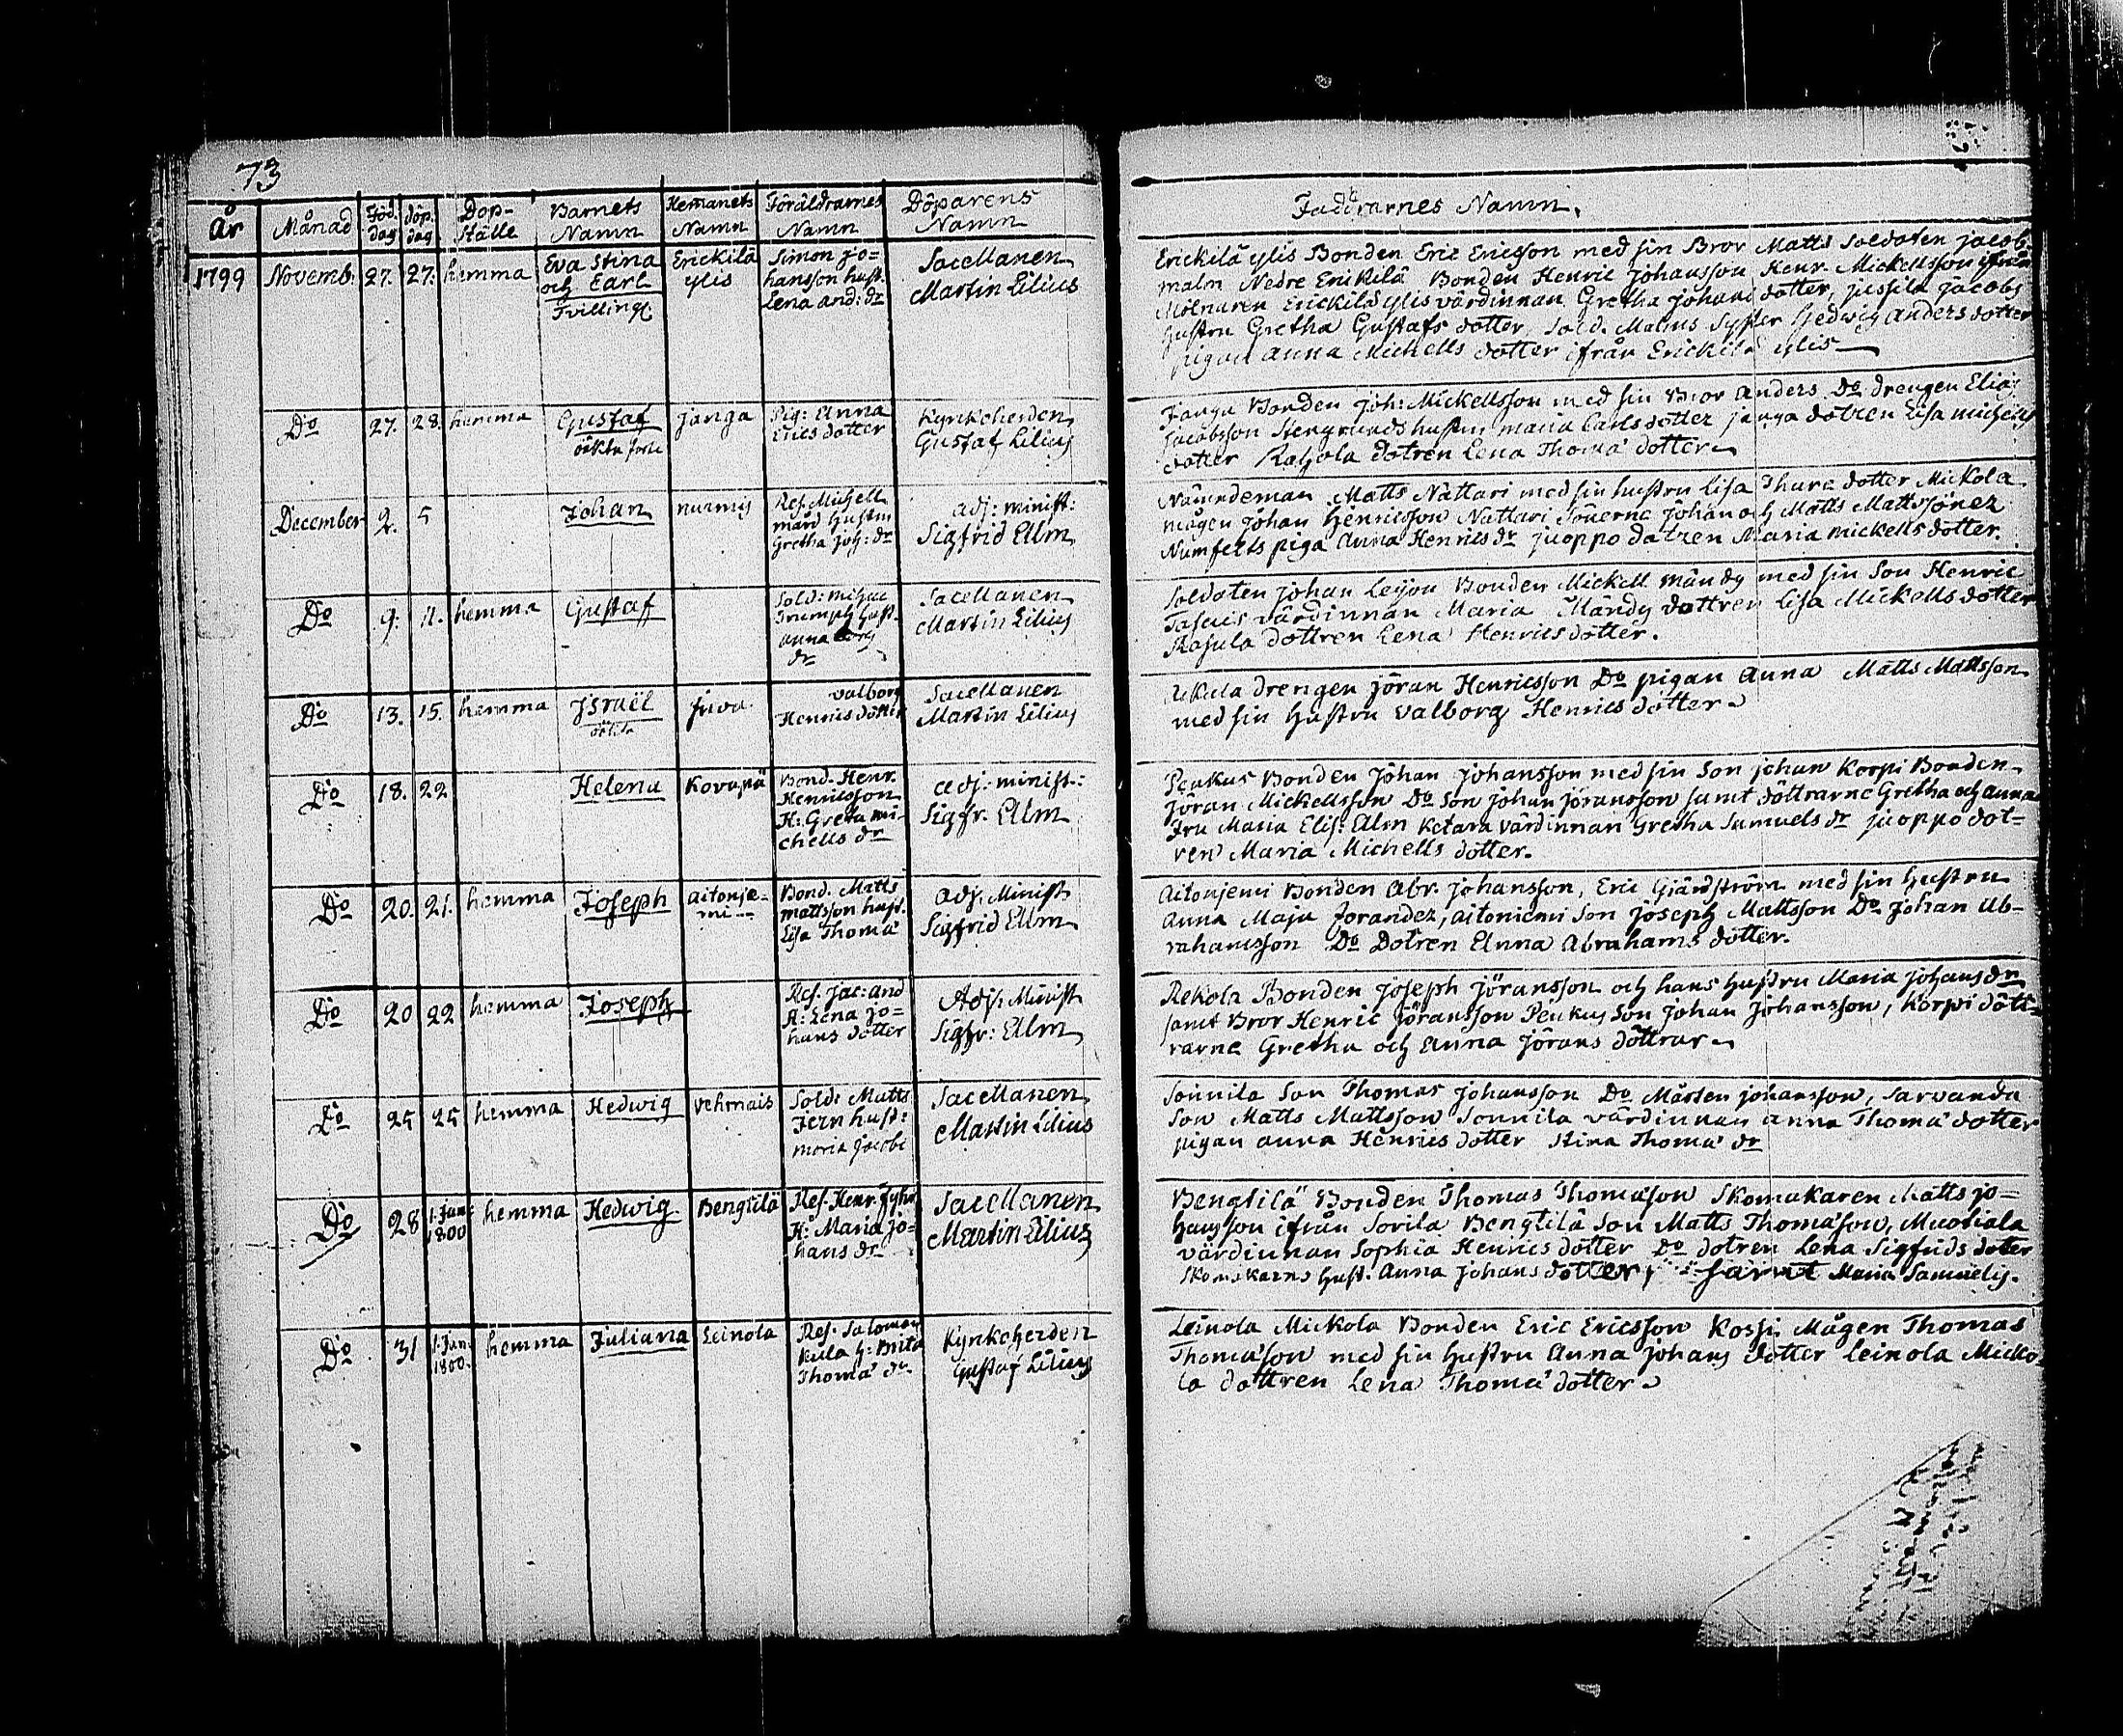 73
År Månad Föd. dag döp. dag Dop- Ställe Barnets Namn Hemanets Namn Föräldrarnes Namn Döparens Namn
1799 Novemb. 27. 27. hemma Eva Stina och Carl Tvilling. Erickilä ylis Simon Jo= hansson hust. Lena And: dr Sacellanen Martin Lilius
Do 27. 28. hemma Gustaf oäkta Janga Pig: Anna Erics dotter Kyrkoherden Gustaf Lilius
December 2. 5 Johan nurmis Ref. Michell mård Hustru Gretha Joh: dr adj: minist: Sigfrid Ellm
Do 9. 11. hemma Gustaf Sold: Michae Triumph hust. Anna dr Sacellanen Martin Lilius
Do 13. 15. hemma Israël oäkta Juva Valborg Henrics dotter Sacellanen Martin Lilius
Do 18. 22 Helena Kovapä Bond. Henr. Henricsson H: Greta mi- chells dr adj: minist: Sigfr. Ellm
Do 20. 21. hemma Joseph Aitonje- mi Bond. Matts mattsson hust. Lisa Thomä Adj. Minist Sigfrid Ellm
Do 20 22 hemma Joseph Ref. Jac: and H: Lena Jo= hans dotter Adj. Minist Sigfr: Ellm
Do 25 25 hemma Hedwig Vehmais Sold: Matts Jern hust: maria Jacobs Sacellanen Martin Lilius
Do 28 1. Jan: 1800 hemma Hedwig Bengtilä Ref. Henr. H: Maria Jo= hans dr Sacellanen Martin Lilius
Do 31 1. Jan: 1800. hemma Juliana Leinola Ref. Salomon Kula h: Brita Thomä dr. Kyrkoherden Gustaf Lilius
Faddrarnes Namn.
Erickilä ylis Bonden Eric Ericsson med sin Bror Matts Soldaten Jacob
malm Nedre Erickilä Bonden Henric Johansson Henr. Mickellsson ifrån
Mölnaren Erickilä ylis värdinnan Gretha Johans dotter, Jussila Jacobs
hustru Gretha Gustafs dotter, Sold. Malms Syster Hedwig Anders dotter
pigan Anna Michells dotter ifrån Erickilä ylis
Janga Bonden Joh: Mickellsson med sin Bror Anders Do drengen Elias
Jacobsson Stengrunds hustru maria Carls dotter janga dotren Lisa michells
dotter Rahola dotren Lena Thomä dotter
Nämndeman Matts Nattari med sin hustru Lisa Thure dotter Mickola
mågen Johan Henricsson Nattari Sönerne Johan och Matts Mattssöner
Numfelts piga Anna Henrics dr Juoppo dotren Maria mickells dotter.
Soldaten Johan Leijon Bonden Mickell Mändy med sin Son Henric
värdinnan Maria Mändy dottren Lisa Mickells dotter
Rasula dottren Lena Henrics dotter.
Ukula drengen Jöran Henricsson Do pigan Anna Matts Mattsson
med sin hustru Valborg Henrics dotter
Penkus Bonden Johan Johansson med sin Son Johan Korpi Bonden
Jöran Mickellsson Do Son Johan Jöransson samt döttrarne Gretha och Anna
Fru Maria Elis: Ellm Ketara värdinnan Gretha Samuels dr Juoppo dot=
ren Maria Michells dotter.
Aitonjemi Bonden Abr. Johansson, Eric Gjärdström med sin hustru
Anna Maja Forander, Aitoniemi Son Joseph Mattsson Do Johan Ab-
rahamsson Do Dotren Anna Abrahams dotter.
Rekola Bonden Joseph Jöransson och hans hustru Maria Johans dr
samt Bror Henric Jöransson Penkus Son Johan Johansson, Korpi dött=
rarne Gretha och Anna Jörans döttrar
Sonnila Son Thomas Johansson Do Mårten Johansson, Sarvanda
Son Matts Mattsson Sonnila värdinnan Anna Thomä dotter
pigan Anna Henrics dotter Stina Thomä dr
Bengtilä Bonden Thomas Thomäson Skomakaren Matts Jo=
hansson ifrån Sorila Bengtilä Son Matts Thomäson, Muotiala
värdinnan Sophia Henrics dotter Do dotren Lena Sigfrids doter
Skomakarns hust. Anna Johans dotter, samt Maria Samuelis.
Leinola Mickola Bonden Eric Ericsson Kossi Mågen Thomas
Thomäson med sin hustru Anna Johans dotter Leinola Micko-
la dottren Lena Thomä dotter